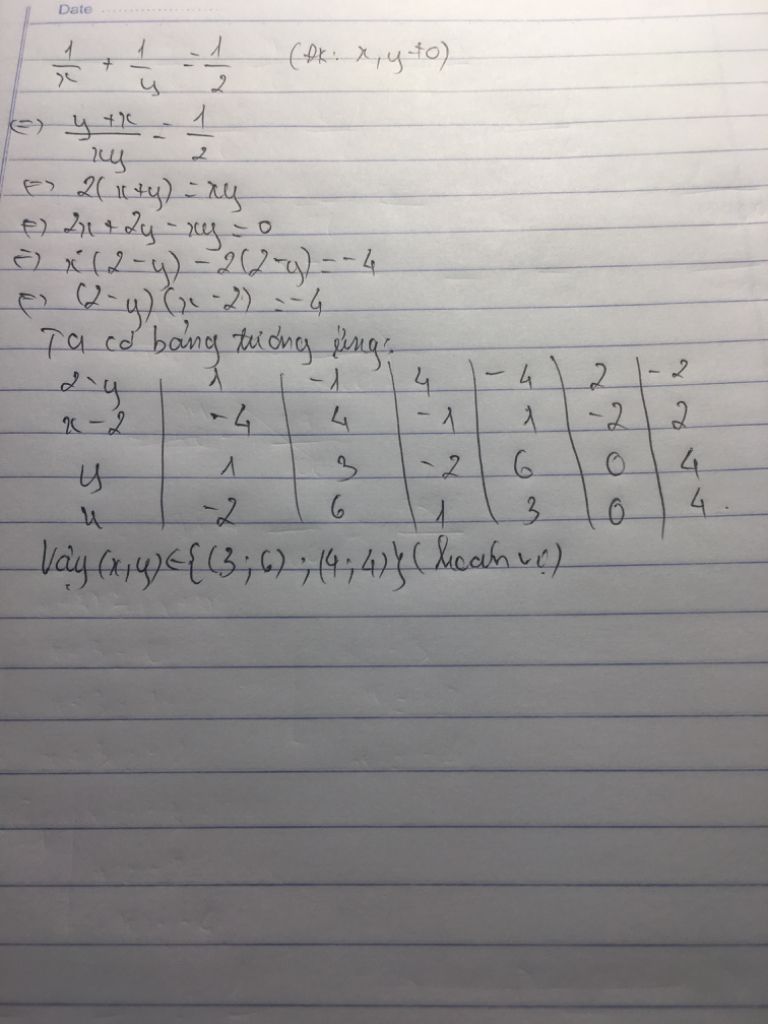 Date
1/x + 1/y = 1/2 (ĐK: x, y ≠ 0)
⇔ (y + x)/xy = 1/2
⇔ 2(x+y) = xy
⇔ 2x + 2y - xy = 0
⇔ x(2-y) - 2(2-y) = -4
⇔ (2-y)(x-2) = -4
Ta có bảng tương ứng:
2-y | 1 | -1 | 4 | -4 | 2 | -2
x-2 | -4 | 4 | -1 | 1 | -2 | 2
y | 1 | 3 | -2 | 6 | 0 | 4
x | -2 | 6 | 1 | 3 | 0 | 4.
Vậy (x,y) ∈ {(3;6);(4;4)} (hoán vị)